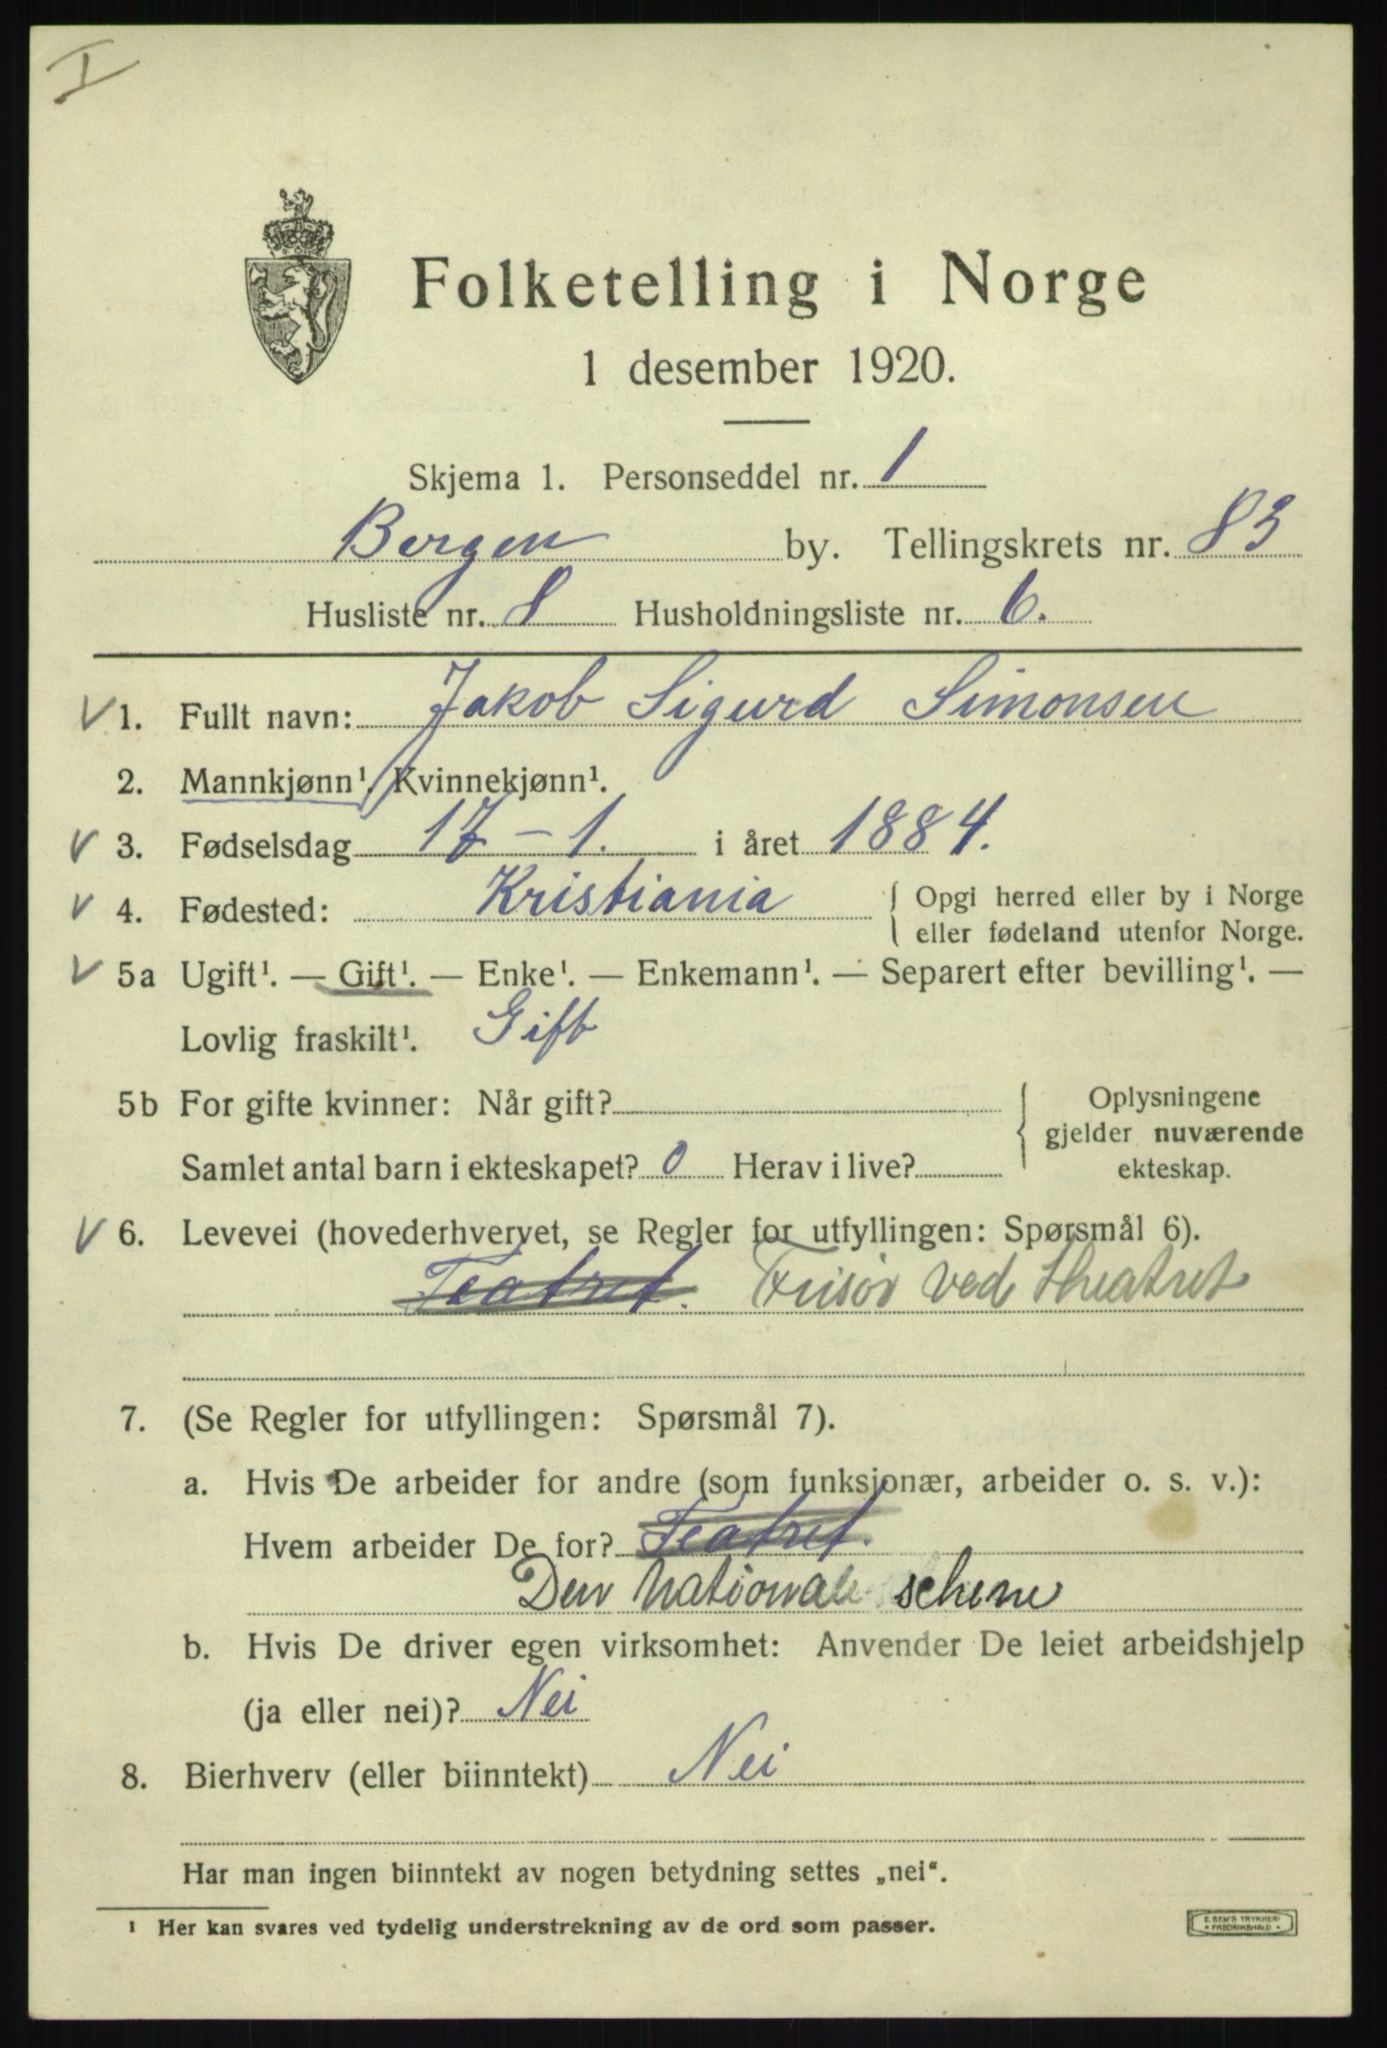 I
Folketelling i Norge
1 desember 1920.
Skjema 1. Personseddel nr. 1
Bergen by. Tellingskrets nr. 83
Husliste nr. 8 Husholdningsliste nr. 6.
V 1. Fullt navn: Jakob Sigurd Simonsen
2. Mannkjønn¹. Kvinnekjønn¹.
V 3. Fødselsdag 17-1. i året 1884.
V 4. Fødested: Kristiania { Opgi herred eller by i Norge
eller fødeland utenfor Norge.
V 5a Ugift¹. — Gift¹. — Enke¹. — Enkemann¹. — Separert efter bevilling¹. —
Lovlig fraskilt¹. Gift
5b For gifte kvinner: Når gift? { Oplysningene
gjelder nuværende
Samlet antal barn i ekteskapet? 0 Herav i live? ekteskap.
V 6. Levevei (hovederhvervet, se Regler for utfyllingen: Spørsmål 6).
Teatret. Frisør ved Theatret
7. (Se Regler for utfyllingen: Spørsmål 7).
a. Hvis De arbeider for andre (som funksjonær, arbeider o. s. v.):
Hvem arbeider De for? Teatret.
Den Nationale schene
b. Hvis De driver egen virksomhet: Anvender De leiet arbeidshjelp
(ja eller nei)? Nei
8. Bierhverv (eller biinntekt) Nei
Har man ingen biinntekt av nogen betydning settes „nei“.
¹ Her kan svares ved tydelig understrekning av de ord som passer.
E. SEM'S TRYKKERI
• FREDRIKSHALD •